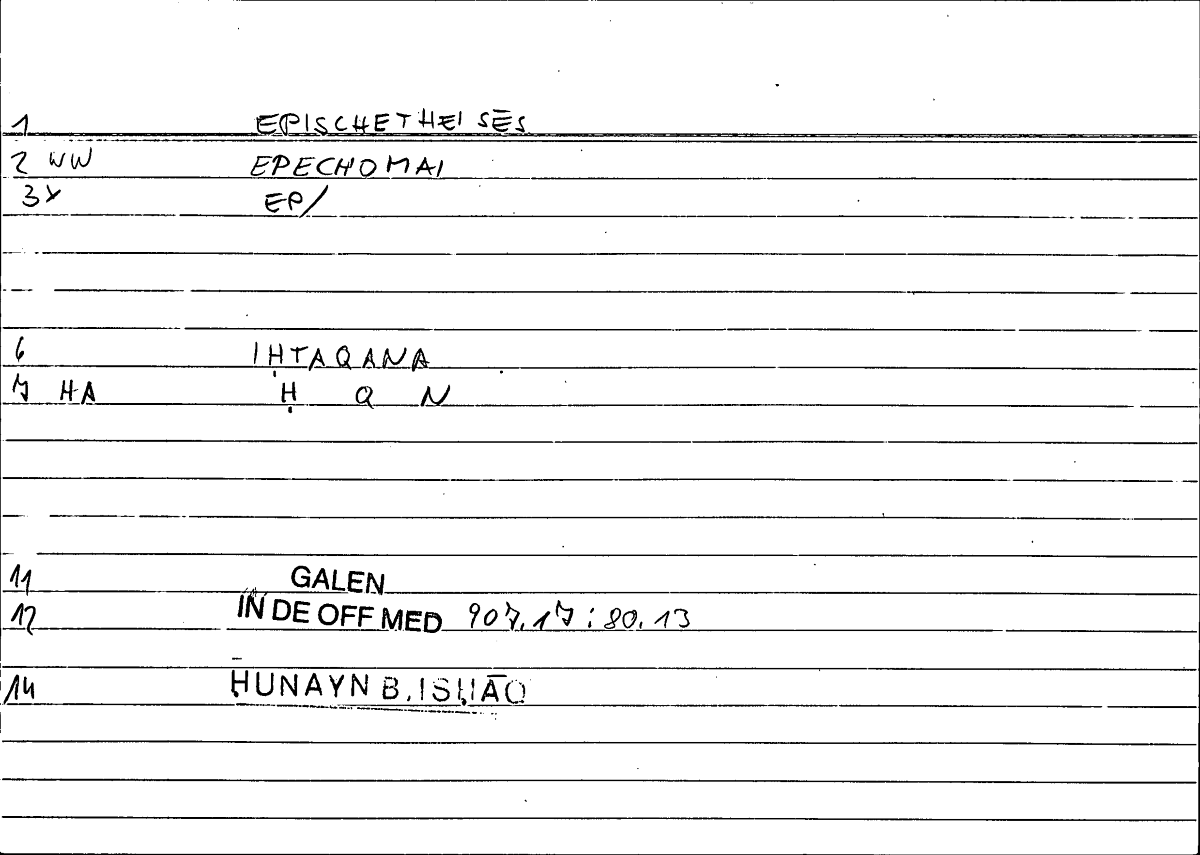 1 EPISCHETHEISĒS
2 WW EPECHOMAI
3X EP/
6 IḤTAQANA
7 HA Ḥ Q N
11 GALEN
12 IN DE OFF MED 907,17 : 80.13
14 ḤUNAYN B. ISḤĀQ